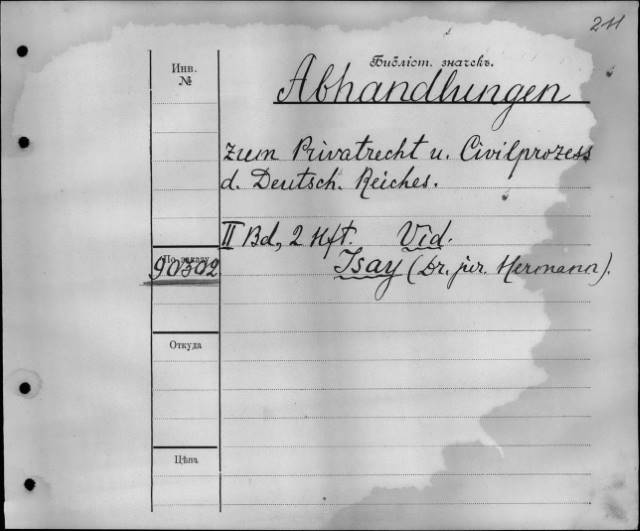 211
Инв.
№
Библіот. значекъ.
Abhandlungen
zum Privatrecht u. Civilprozess
d. Deutsch. Reiches.
II Bd, 2 Hft. Vid.
По заказу
90302
Isay (Dr. jur. Hermann).
Откуда
Цѣна